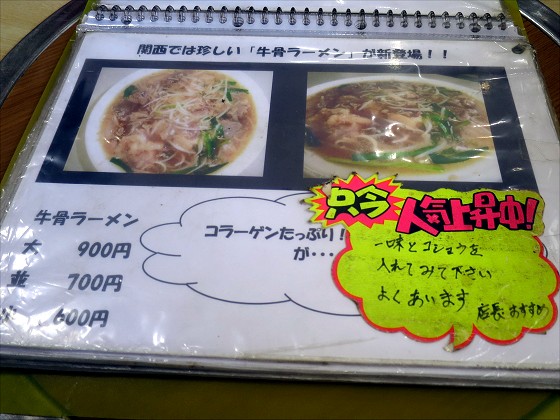 関西では珍しい「牛骨ラーメン」が新登場！！
牛骨ラーメン
大 900円
並 700円
600円
コラーゲンたっぷり！
が・・・
只今
人気上昇中!
一味とコショウを
入れてみて下さい
よくあいます
店長おすすめ